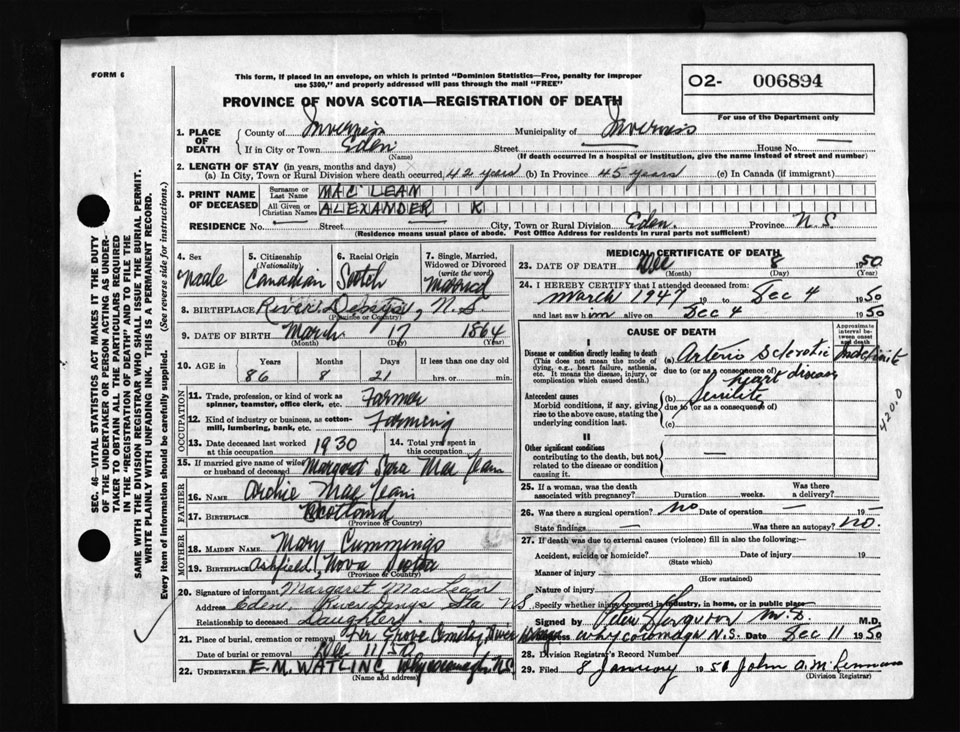 FORM 6
This form, if placed in an envelope, on which is printed "Dominion Statistics—Free, penalty for improper
use $300," and properly addressed will pass through the mail "FREE"
O2- 006894
For use of the Department only
PROVINCE OF NOVA SCOTIA—REGISTRATION OF DEATH
1. PLACE OF DEATH { County of Inverness Municipality of Inverness
If in City or Town Eden Street House No. —
(Name) (If death occurred in a hospital or institution, give the name instead of street and number)
2. LENGTH OF STAY (in years, months and days)
(a) In City, Town or Rural Division where death occurred 42 years (b) In Province 45 years (c) In Canada (if immigrant)
3. PRINT NAME OF DECEASED { Surname or Last Name MAC LEAN
All Given or Christian Names ALEXANDER K
RESIDENCE No. — Street — City, Town or Rural Division Eden. Province N.S
(Residence means usual place of abode. Post Office Address for residents in rural parts not sufficient)
4. Sex 5. Citizenship (Nationality) 6. Racial Origin 7. Single, Married, Widowed or Divorced (write the word)
Male Canadian Scotch Married
8. BIRTHPLACE River Denys, N.S.
(Province or Country)
9. DATE OF BIRTH March 17 1864
(Month) (Day) (Year)
10. AGE { Years Months Days If less than one day old
86 8 21 hrs. or min.
OCCUPATION
11. Trade, profession, or kind of work as spinner, teamster, office clerk, etc. Farmer
12. Kind of industry or business, as cotton-mill, lumbering, bank, etc. Farming
13. Date deceased last worked at this occupation 1930 14. Total yrs. spent in this occupation
15. If married give name of wife or husband of deceased Margaret Sara Mac Lean
FATHER
16. NAME Archie Mac Lean
17. BIRTHPLACE Scotland
(Province or Country)
MOTHER
18. MAIDEN NAME Mary Cummings
19. BIRTHPLACE Ashfield, Nova Scotia
(Province or Country)
20. Signature of informant Margaret MacLean
Address Eden, River Denys Sta NS
Relationship to deceased Daughter
21. Place of burial, cremation or removal Fir Grove Cemetry, River Denys
Date of burial or removal Dec 11/50
22. UNDERTAKER E.M. WATLING Whycocomagh N.S.
(Name and address)
MEDICAL CERTIFICATE OF DEATH
23. DATE OF DEATH Dec 8 1950
(Month) (Day) (Year)
24. I HEREBY CERTIFY that I attended deceased from:
March 1947 19 to Dec 4 1950
and last saw him alive on Dec 4 1950
CAUSE OF DEATH
Approximate interval between onset and death
I
Disease or condition directly leading to death
(This does not mean the mode of dying, e.g., heart failure, asthenia, etc. It means the disease, injury, or complication which caused death.)
(a) Arterio Sclerotic Indefinite
due to (or as a consequence of) heart disease
Antecedent causes
Morbid conditions, if any, giving rise to the above cause, stating the underlying condition last.
(b) Senility
due to (or as a consequence of)
(c)
420.0
II
Other significant conditions
contributing to the death, but not related to the disease or condition causing it.
—
25. If a woman, was the death associated with pregnancy? Duration weeks. Was there a delivery?
26. Was there a surgical operation? no Date of operation — 19 —
State findings — Was there an autopsy? no.
27. If death was due to external causes (violence) fill in also the following:—
Accident, suicide or homicide? Date of injury 19
(State which)
Manner of injury
(How sustained)
Nature of injury
Specify whether injury occurred in industry, in home, or in public place
Signed by Peter Ferguson M.D. M.D.
Address Whycocomagh N.S. Date Dec 11 1950
28. Division Registrar's Record Number
29. Filed 8 January 1950 John A. McLennan
(Division Registrar)
SEC. 46—VITAL STATISTICS ACT MAKES IT THE DUTY
OF THE UNDERTAKER OR PERSON ACTING AS UNDER-
TAKER TO OBTAIN ALL THE PARTICULARS REQUIRED
IN THE "REGISTRATION OF DEATH" AND TO FILE THE
SAME WITH THE DIVISION REGISTRAR WHO SHALL ISSUE THE BURIAL PERMIT.
WRITE PLAINLY WITH UNFADING INK. THIS IS A PERMANENT RECORD.
Every item of information should be carefully supplied. (See reverse side for instructions.)